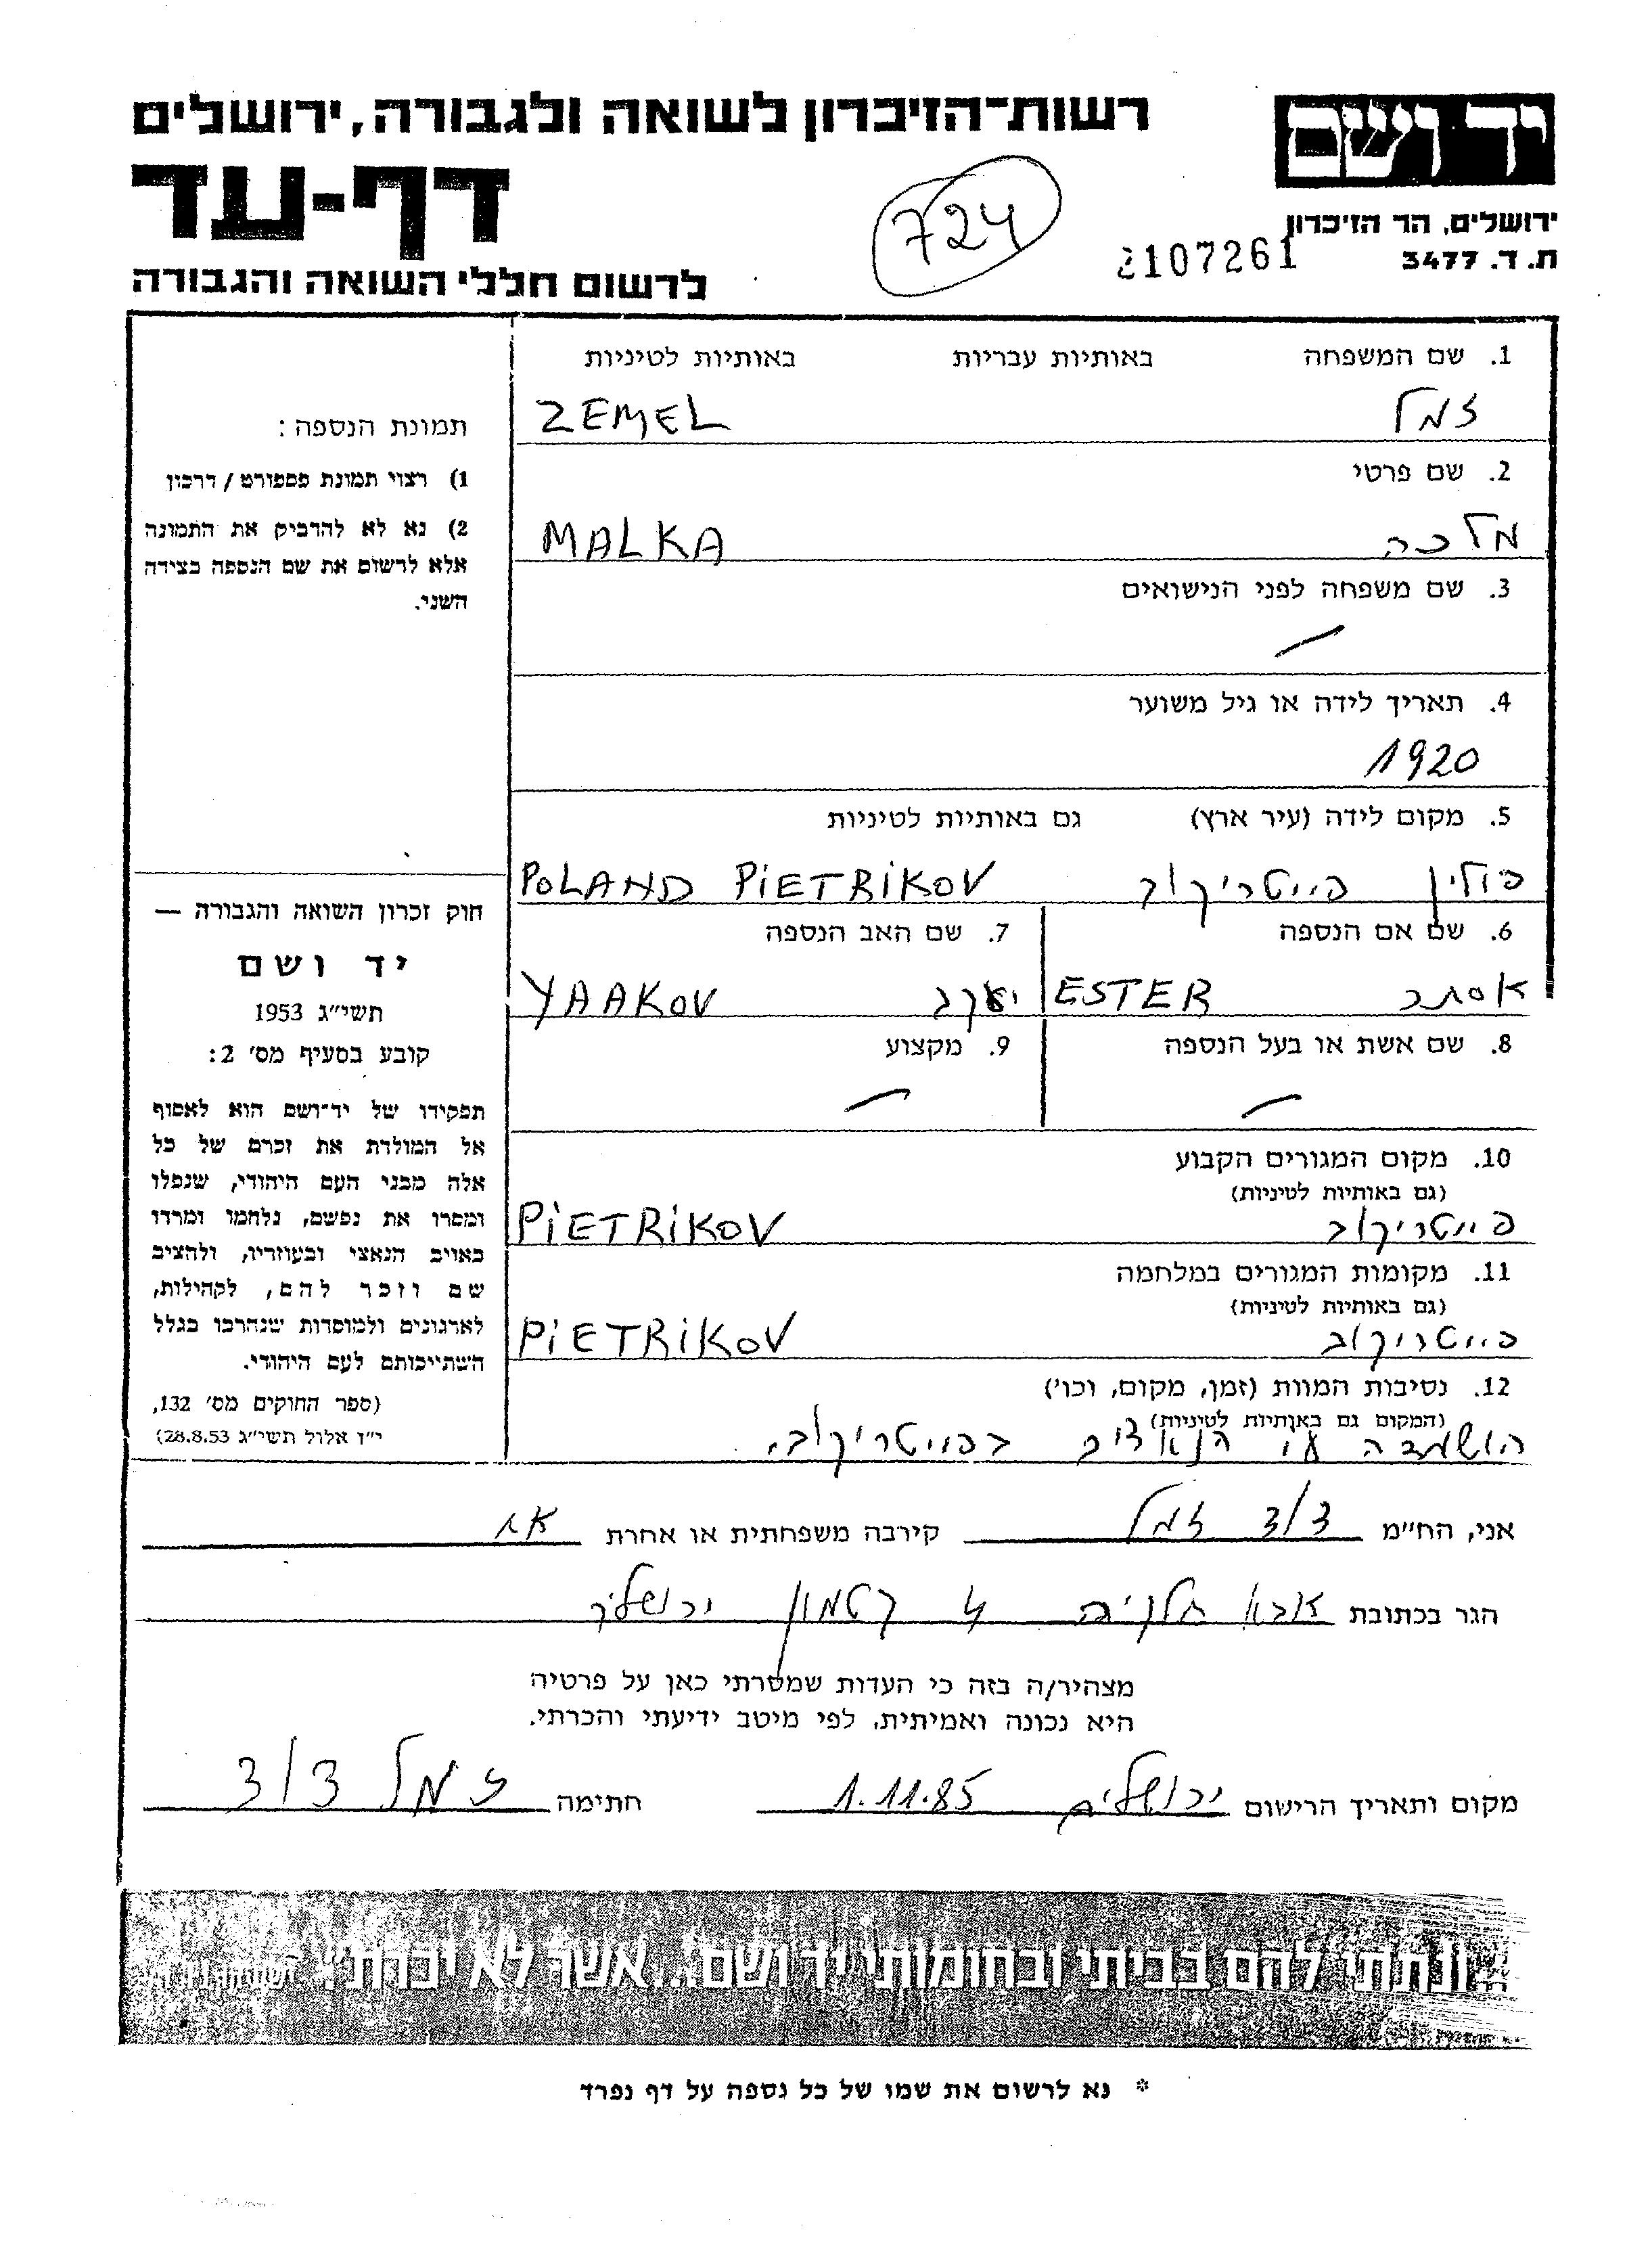 רשות-הזיכרון לשואה ולגבורה, ירושלים
יד ושם
דף-עד
724
ירושלים, הר הזיכרון
2107261
ת. ד. 3477
לרשום חללי השואה והגבורה
1. שם המשפחה באותיות עבריות באותיות לטיניות
זמל ZEMEL
2. שם פרטי
מלכה MALKA
3. שם משפחה לפני הנישואים
4. תאריך לידה או גיל משוער
1920
5. מקום לידה (עיר ארץ) גם באותיות לטיניות
פולין פייטריקוב POLAND PIETRIKOV
6. שם אם הנספה 7. שם האב הנספה
אסתר ESTER יעקב YAAKOV
8. שם אשת או בעל הנספה 9. מקצוע
10. מקום המגורים הקבוע
(גם באותיות לטיניות)
פייטריקוב PIETRIKOV
11. מקומות המגורים במלחמה
(גם באותיות לטיניות)
פייטריקוב PIETRIKOV
12. נסיבות המוות (זמן, מקום, וכו')
(המקום גם באותיות לטיניות)
הושמדה ע"י הנאצים בפייטריקוב.
תמונת הנספה:
1) רצוי תמונת פספורט / דרכון
2) נא לא להדביק את התמונה
אלא לרשום את שם הנספה בצידה
השני.
חוק זכרון השואה והגבורה —
יד ושם
תשי"ג 1953
קובע בסעיף מס' 2:
תפקידו של יד-ושם הוא לאסוף
אל המולדת את זכרם של כל
אלה מבני העם היהודי, שנפלו
ומסרו את נפשם, נלחמו ומרדו
באויב הנאצי ובעוזריו, ולהציב
שם וזכר להם, לקהילות,
לארגונים ולמוסדות שנהרבו בגלל
השתייכותם לעם היהודי.
(ספר החוקים מס' 132,
י"ז אלול תשי"ג 28.8.53)
אני, הח"מ דוד זמל קירבה משפחתית או אחרת אח
הגר בכתובת אבא חלקיה 4 קטמון ירושלים
מצהיר/ה בזה כי העדות שמסרתי כאן על פרטיה
היא נכונה ואמיתית, לפי מיטב ידיעתי והכרתי.
מקום ותאריך הרישום ירושלים 1.11.85 חתימה זמל דוד
"...ונתתי להם בביתי ובחומותי יד ושם... אשר לא יכרת".
* נא לרשום את שמו של כל נספה על דף נפרד